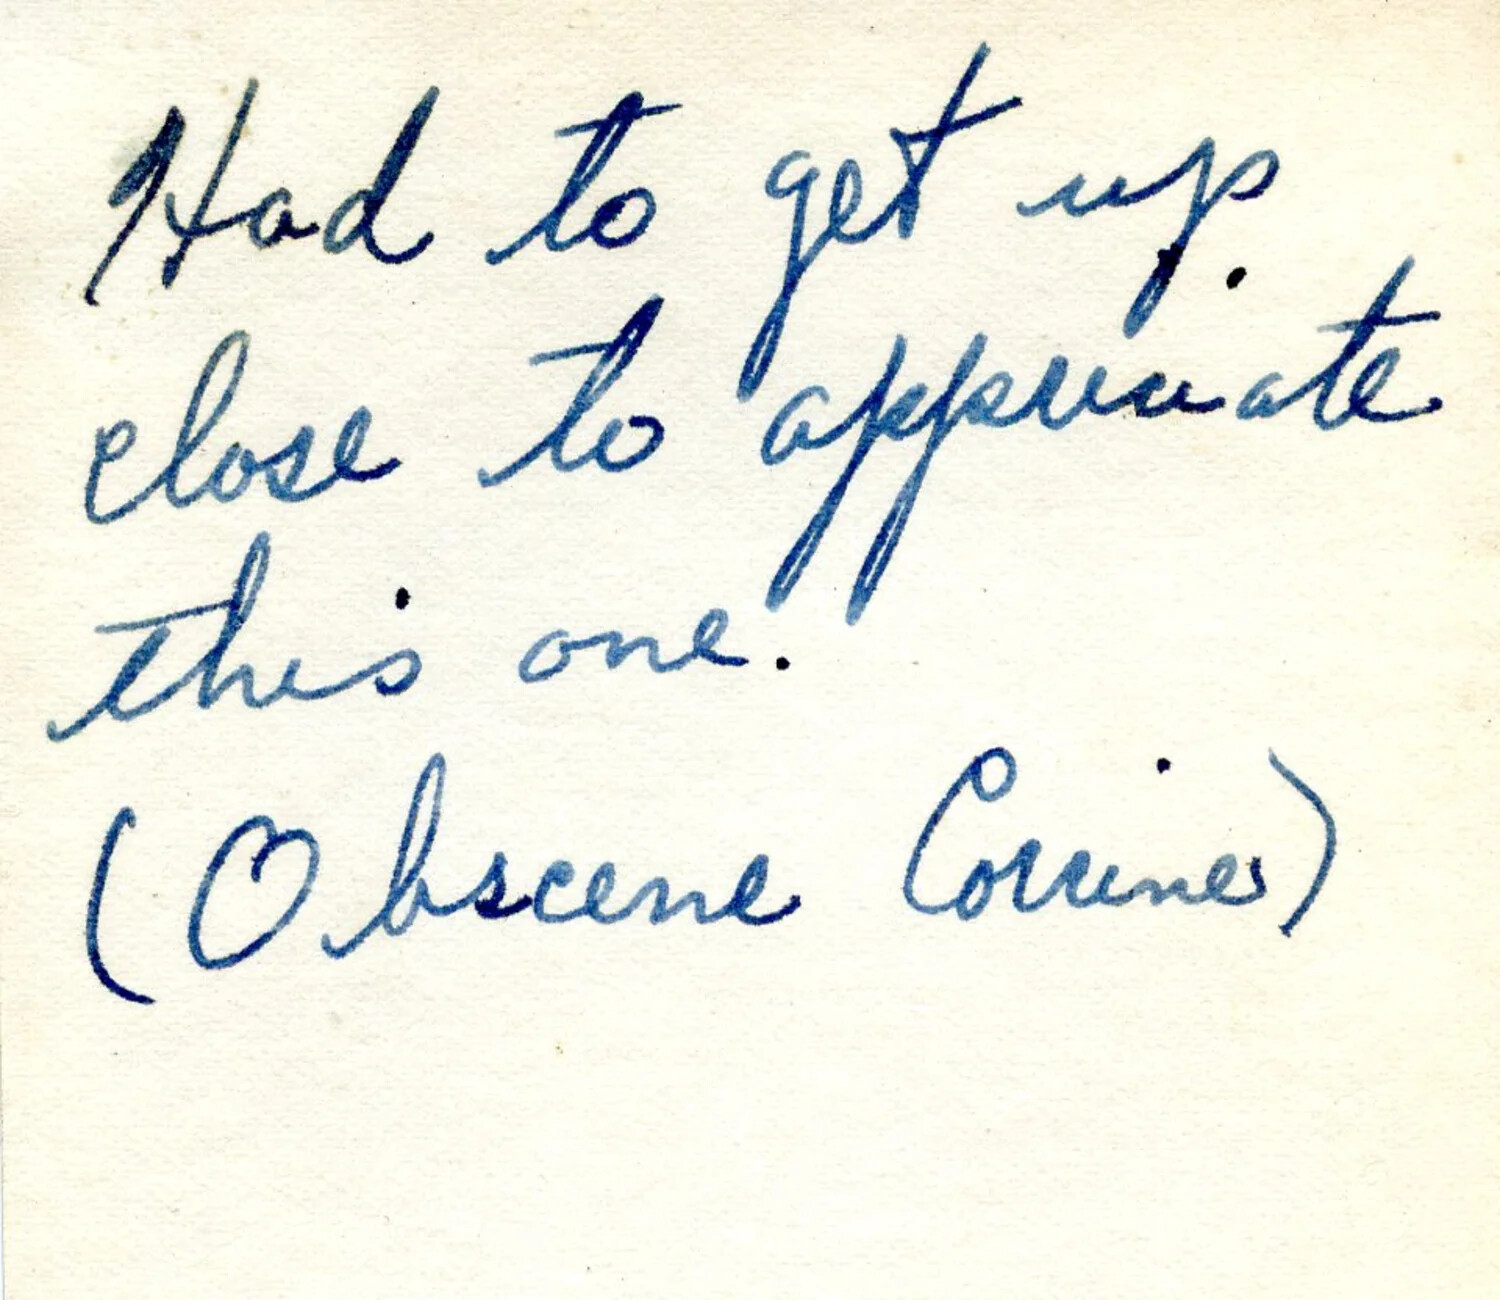 Had to get up
close to appreciate
this one.
(Obscene Corrine)